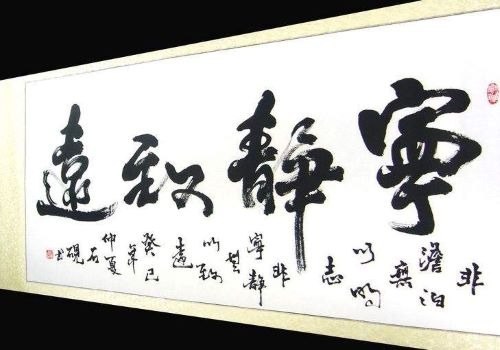 寧靜致遠
非
澹泊
無
以明
志
非
寧靜
無
以致
遠
癸巳
年
仲夏
石
硯
书